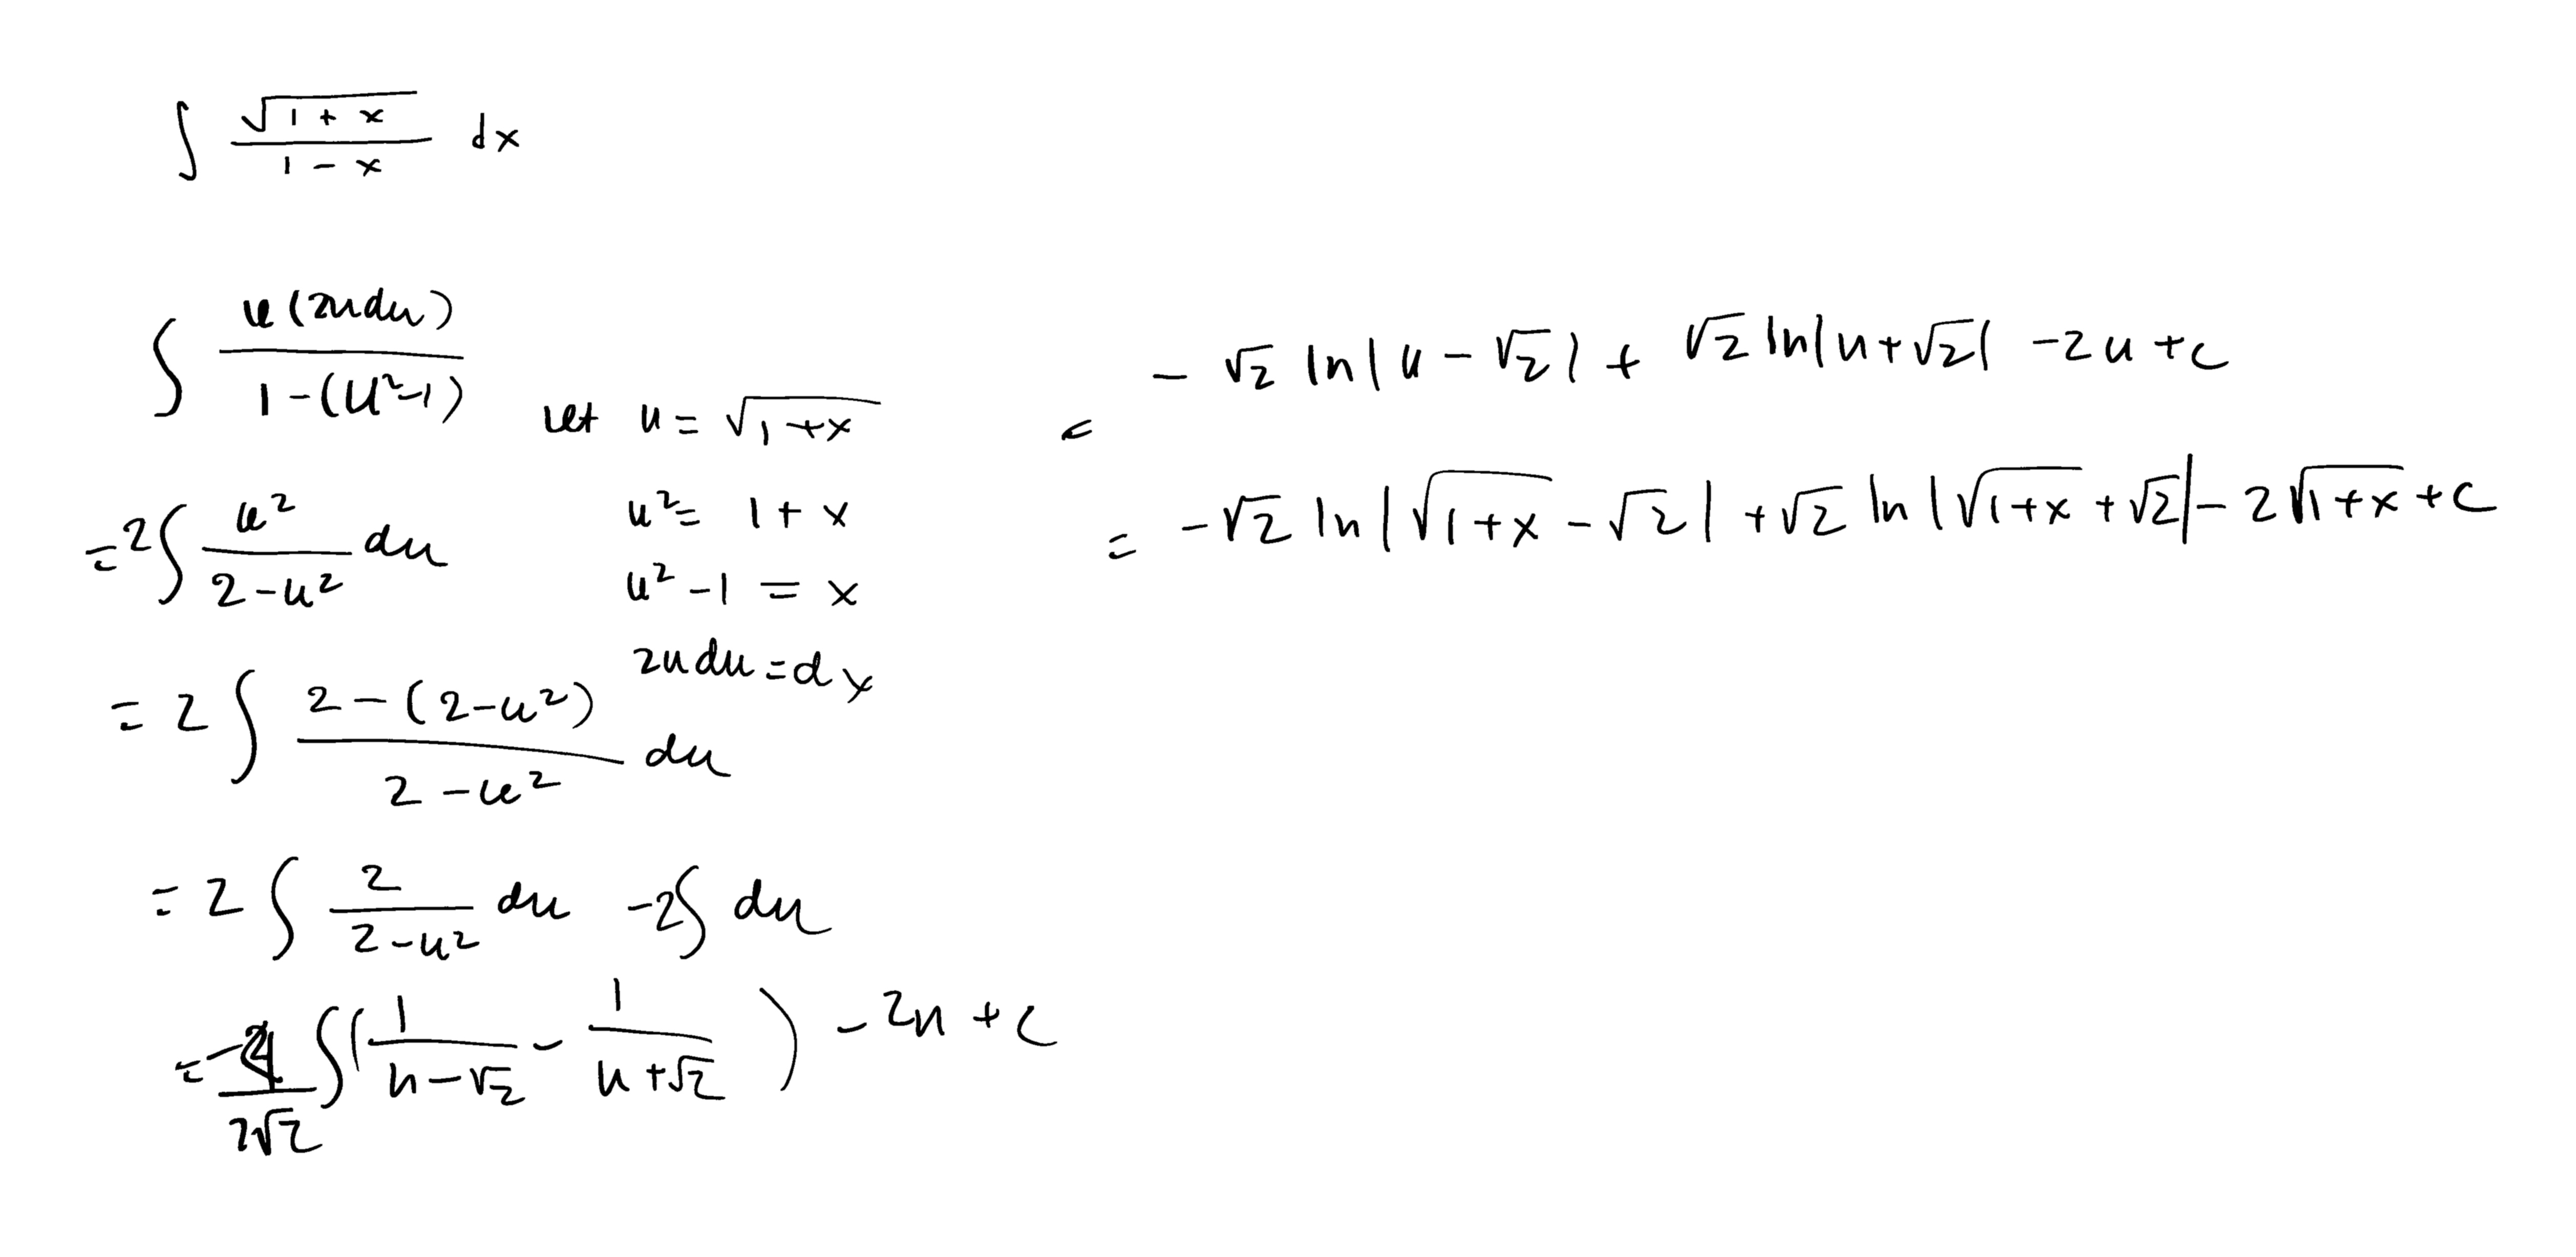 ∫ √(1 + x) / (1 - x) dx
∫ u(2udu) / (1-(u²-1))
let u = √(1+x)
u² = 1 + x
u² - 1 = x
2udu = dx
= 2∫ u² / (2-u²) du
= 2 ∫ (2-(2-u²)) / (2-u²) du
= 2 ∫ 2 / (2-u²) du -2∫ du
= -4 / (2√2) ∫( 1 / (u-√2) - 1 / (u+√2) ) - 2u + c
= - √2 ln|u - √2| + √2 ln|u+√2| -2u +c
= -√2 ln|√(1+x) - √2| + √2 ln|√(1+x) + √2| - 2√(1+x) + c